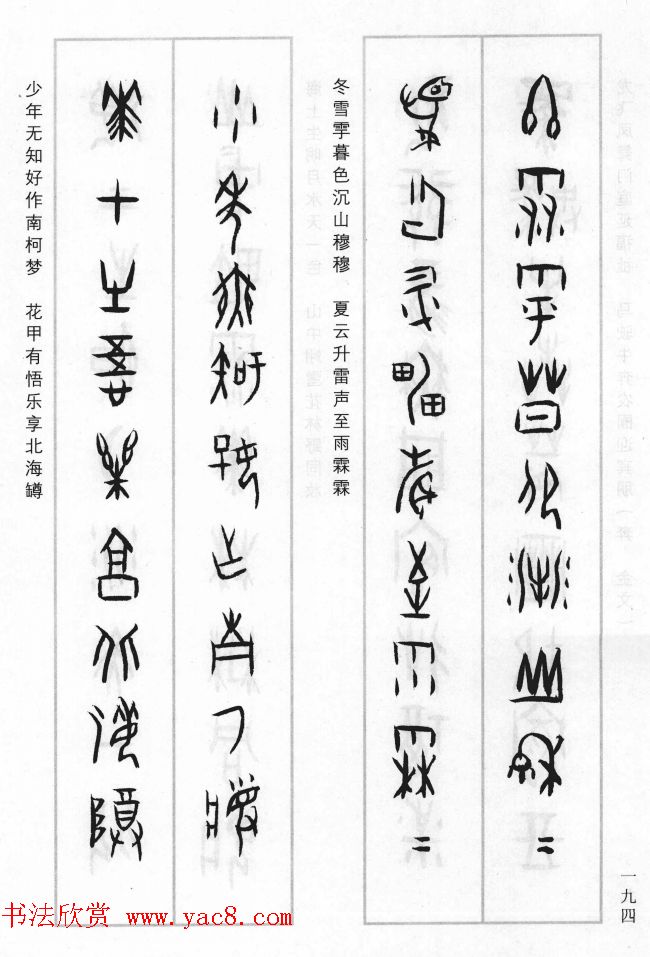 冬雪雩暮色沉山穆穆 夏云升雷声至雨霖霖
少年无知好作南柯梦 花甲有悟乐享北海罇
一九四
书法欣赏 www.yac8.com